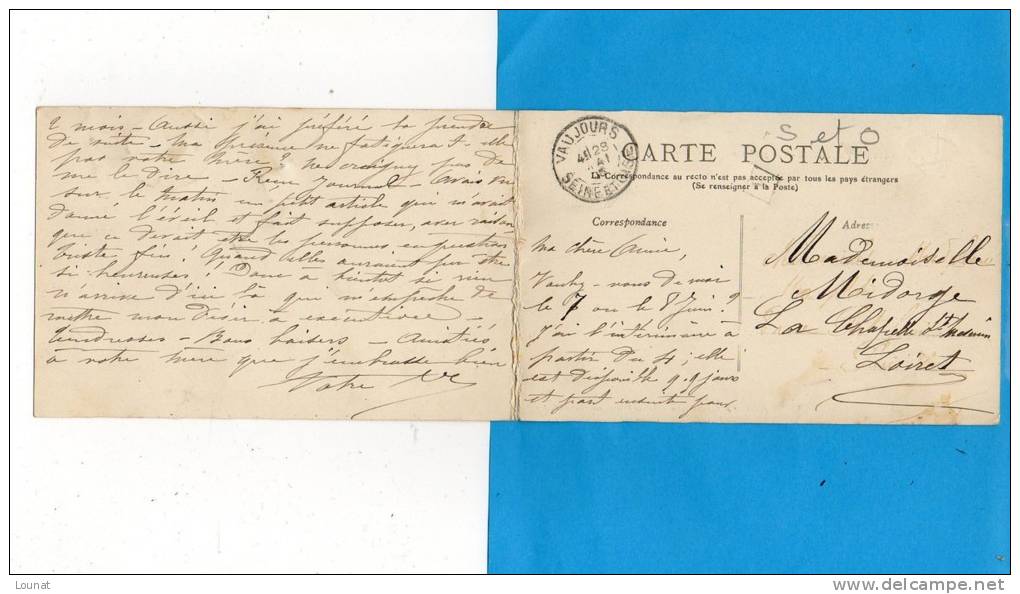 S et O
VAUJOURS
28
MAI
SEINE ET OISE
CARTE POSTALE
La Correspondance au recto n'est pas acceptée par tous les pays étrangers
(Se renseigner à la Poste)
Correspondance
Adresse
Mademoiselle
Midorge
La Chapelle St Mesmin
Loiret
Ma chère Amie
Voulez-vous de moi
le 7 ou le 8 Juin?
J'ai l'intérimaire à
partir du 4; elle
est disponible qq jours
et part ensuite pour
2 mois - Aussi j'ai préféré la prendre
de suite - Ma présence ne fatiguera t-elle
pas votre mère? Ne craignez pas de
me le dire - Reçu Journal - Avais vu
sur le Matin un petit article qui m'avait
donné l'éveil et fait supposer, avec raison
que ce devait être les personnes en question
triste fin! Quand elles auraient pu être
si heureuses! Donc à bientôt si rien
n'arrive d'ici là qui m'empêche de
mettre mon désir à exécution
Tendresses - Bons baisers - Amitiés
à votre mère que j'embrasse bien
Votre
Lounat
www.delcampe.net